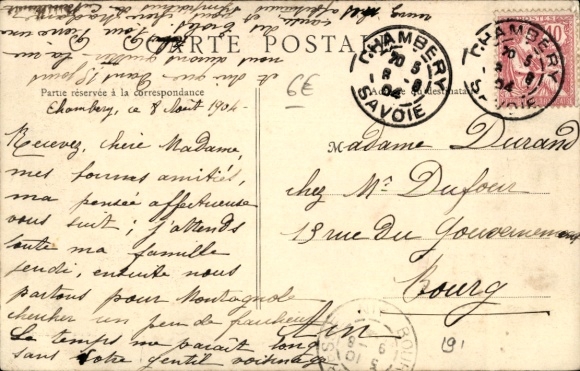 CARTE POSTALE
Partie réservée à la correspondance
Adresse du destinataire
Chambery, ce 8 Août 1904.
Recevez, chère Madame,
mes bonnes amitiés,
ma pensée affectueuse
vous suit ; j'attends
toute ma famille
jeudi, ensuite nous
partons pour Montagnole
chercher un peu de fraicheur
Le temps me parait long
sans votre gentil voisinage
Madame Durand
chez Mr Dufour
15 rue du Gouvernement
Bourg
Ain
CHAMBERY
SAVOIE
CHAMBERY
SAVOIE
10
6E
191
BOURG